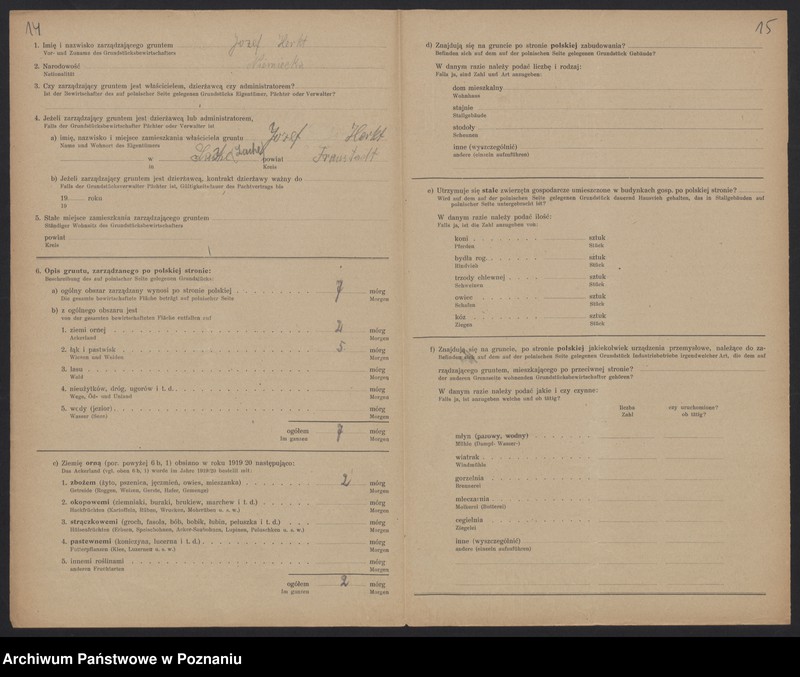 14
1. Imię i nazwisko zarządzającego gruntem Jozef Herkt
Vor- und Zuname des Grundstücksbewirtschafters
2. Narodowość Niemiecka
Nationalität
3. Czy zarządzający gruntem jest właścicielem, dzierżawcą czy administratorem?
Ist der Bewirtschafter des auf polnischer Seite gelegenen Grundstücks Eigentümer, Pächter oder Verwalter?
4. Jeżeli zarządzający gruntem jest dzierżawcą lub administratorem,
Falls der Grundstücksbewirtschafter Pächter oder Verwalter ist
a) imię, nazwisko i miejsce zamieszkania właściciela gruntu Jozef Herkt
Name und Wohnort des Eigentümers
w powiat Fraustadt
in Kreis
b) Jeżeli zarządzający gruntem jest dzierżawcą, kontrakt dzierżawy ważny do
Falls der Grundstücksverwalter Pächter ist, Gültigkeitsdauer des Pachtvertrags bis
19 roku
19
5. Stałe miejsce zamieszkania zarządzającego gruntem
Ständiger Wohnsitz des Grundstücksbewirtschafters
powiat
Kreis
6. Opis gruntu, zarządzanego po polskiej stronie:
Beschreibung des auf polnischer Seite gelegenen Grundstücks:
a) ogólny obszar zarządzany wynosi po stronie polskiej 7 mórg
Die gesamte bewirtschaftete Fläche beträgt auf polnischer Seite Morgen
b) z ogólnego obszaru jest
von der gesamten bewirtschafteten Fläche entfallen auf
1. ziemi ornej 2 mórg
Ackerland Morgen
2. łąk i pastwisk 5 mórg
Wiesen und Weiden Morgen
3. lasu mórg
Wald Morgen
4. nieużytków, dróg, ugorów i t. d. mórg
Wege, Öd- und Unland Morgen
5. wody (jezior) mórg
Wasser (Seen) Morgen
ogółem 7 mórg
Im ganzen Morgen
c) Ziemię orną (por. powyżej 6 b, 1) obsiano w roku 1919 20 następująco:
Das Ackerland (vgl. oben 6 b, 1) wurde im Jahre 1919/20 bestellt mit:
1. zbożem (żyto, pszenica, jęczmień, owies, mieszanka) 2 mórg
Getreide (Roggen, Weizen, Gerste, Hafer, Gemenge) Morgen
2. okopowemi (ziemniaki, buraki, brukiew, marchew i t. d.) mórg
Hackfrüchten (Kartoffeln, Rüben, Wrucken, Mohrrüben u. s. w.) Morgen
3. strączkowemi (groch, fasola, bób, bobik, łubin, peluszka i t. d.) mórg
Hülsenfrüchten (Erbsen, Speisebohnen, Acker-Saubohnen, Lupinen, Peluschken u. s. w.) Morgen
4. pastewnemi (koniczyna, lucerna i t. d.) mórg
Futterpflanzen (Klee, Luzernen u. s. w.) Morgen
5. innemi roślinami mórg
anderen Fruchtarten Morgen
ogółem 2 mórg
Im ganzen Morgen
15
d) Znajdują się na gruncie po stronie polskiej zabudowania?
Befinden sich auf dem auf der polnischen Seite gelegenen Grundstück Gebäude?
W danym razie należy podać liczbę i rodzaj:
Falls ja, sind Zahl und Art anzugeben:
dom mieszkalny
Wohnhaus
stajnie
Stallgebäude
stodoły
Scheunen
inne (wyszczególnić)
andere (einzeln aufzuführen)
e) Utrzymuje się stale zwierzęta gospodarcze umieszczone w budynkach gosp. po polskiej stronie?
Wird auf dem auf der polnischen Seite gelegenen Grundstück dauernd Hausvieh gehalten, das in Stallgebäuden auf
polnischer Seite untergebracht ist?
W danym razie należy podać ilość:
Falls ja, ist die Zahl anzugeben von:
koni sztuk
Pferden Stück
bydła rog. sztuk
Rindvieh Stück
trzody chlewnej sztuk
Schweinen Stück
owiec sztuk
Schafen Stück
kóz sztuk
Ziegen Stück
f) Znajdują się na gruncie, po stronie polskiej jakiekolwiek urządzenia przemysłowe, należące do za-
Befinden sich auf dem auf der polnischen Seite gelegenen Grundstück Industriebetriebe irgendwelcher Art, die dem auf
rządzającego gruntem, mieszkającego po przeciwnej stronie?
der anderen Grenzseite wohnenden Grundstücksbewirtschafter gehören?
W danym razie należy podać jakie i czy czynne:
Falls ja, ist anzugeben welche und ob tätig?
liczba czy uruchomione?
Zahl ob tätig?
młyn (parowy, wodny)
Mühle (Dampf- Wasser-)
wiatrak
Windmühle
gorzelnia
Brennerei
mleczarnia
Molkerei (Butterei)
cegielnia
Ziegelei
inne (wyszczególnić)
andere (einzeln aufzuführen)
Archiwum Państwowe w Poznaniu